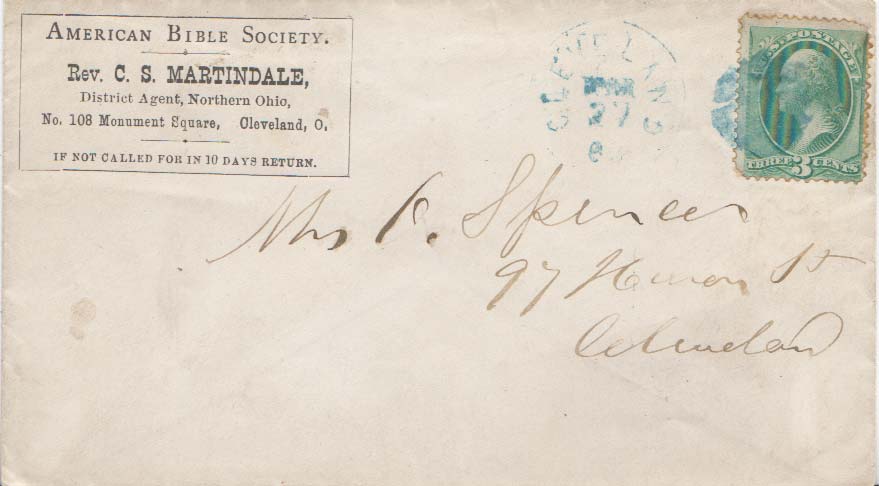 AMERICAN BIBLE SOCIETY.
Rev. C. S. MARTINDALE,
District Agent, Northern Ohio,
No. 108 Monument Square, Cleveland, O,
IF NOT CALLED FOR IN 10 DAYS RETURN.
CLEVELAND
27
U.S. POSTAGE
THREE 3 CENTS
Mrs P. Spencer
97 Huron St
Cleveland